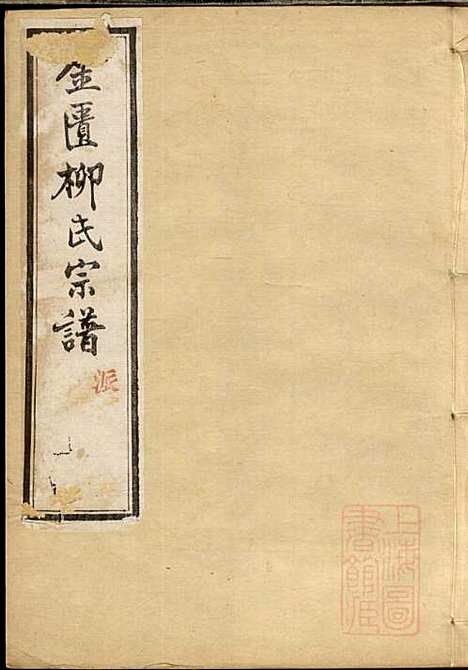 金匱柳氏宗譜
派
上海圖
書館藏